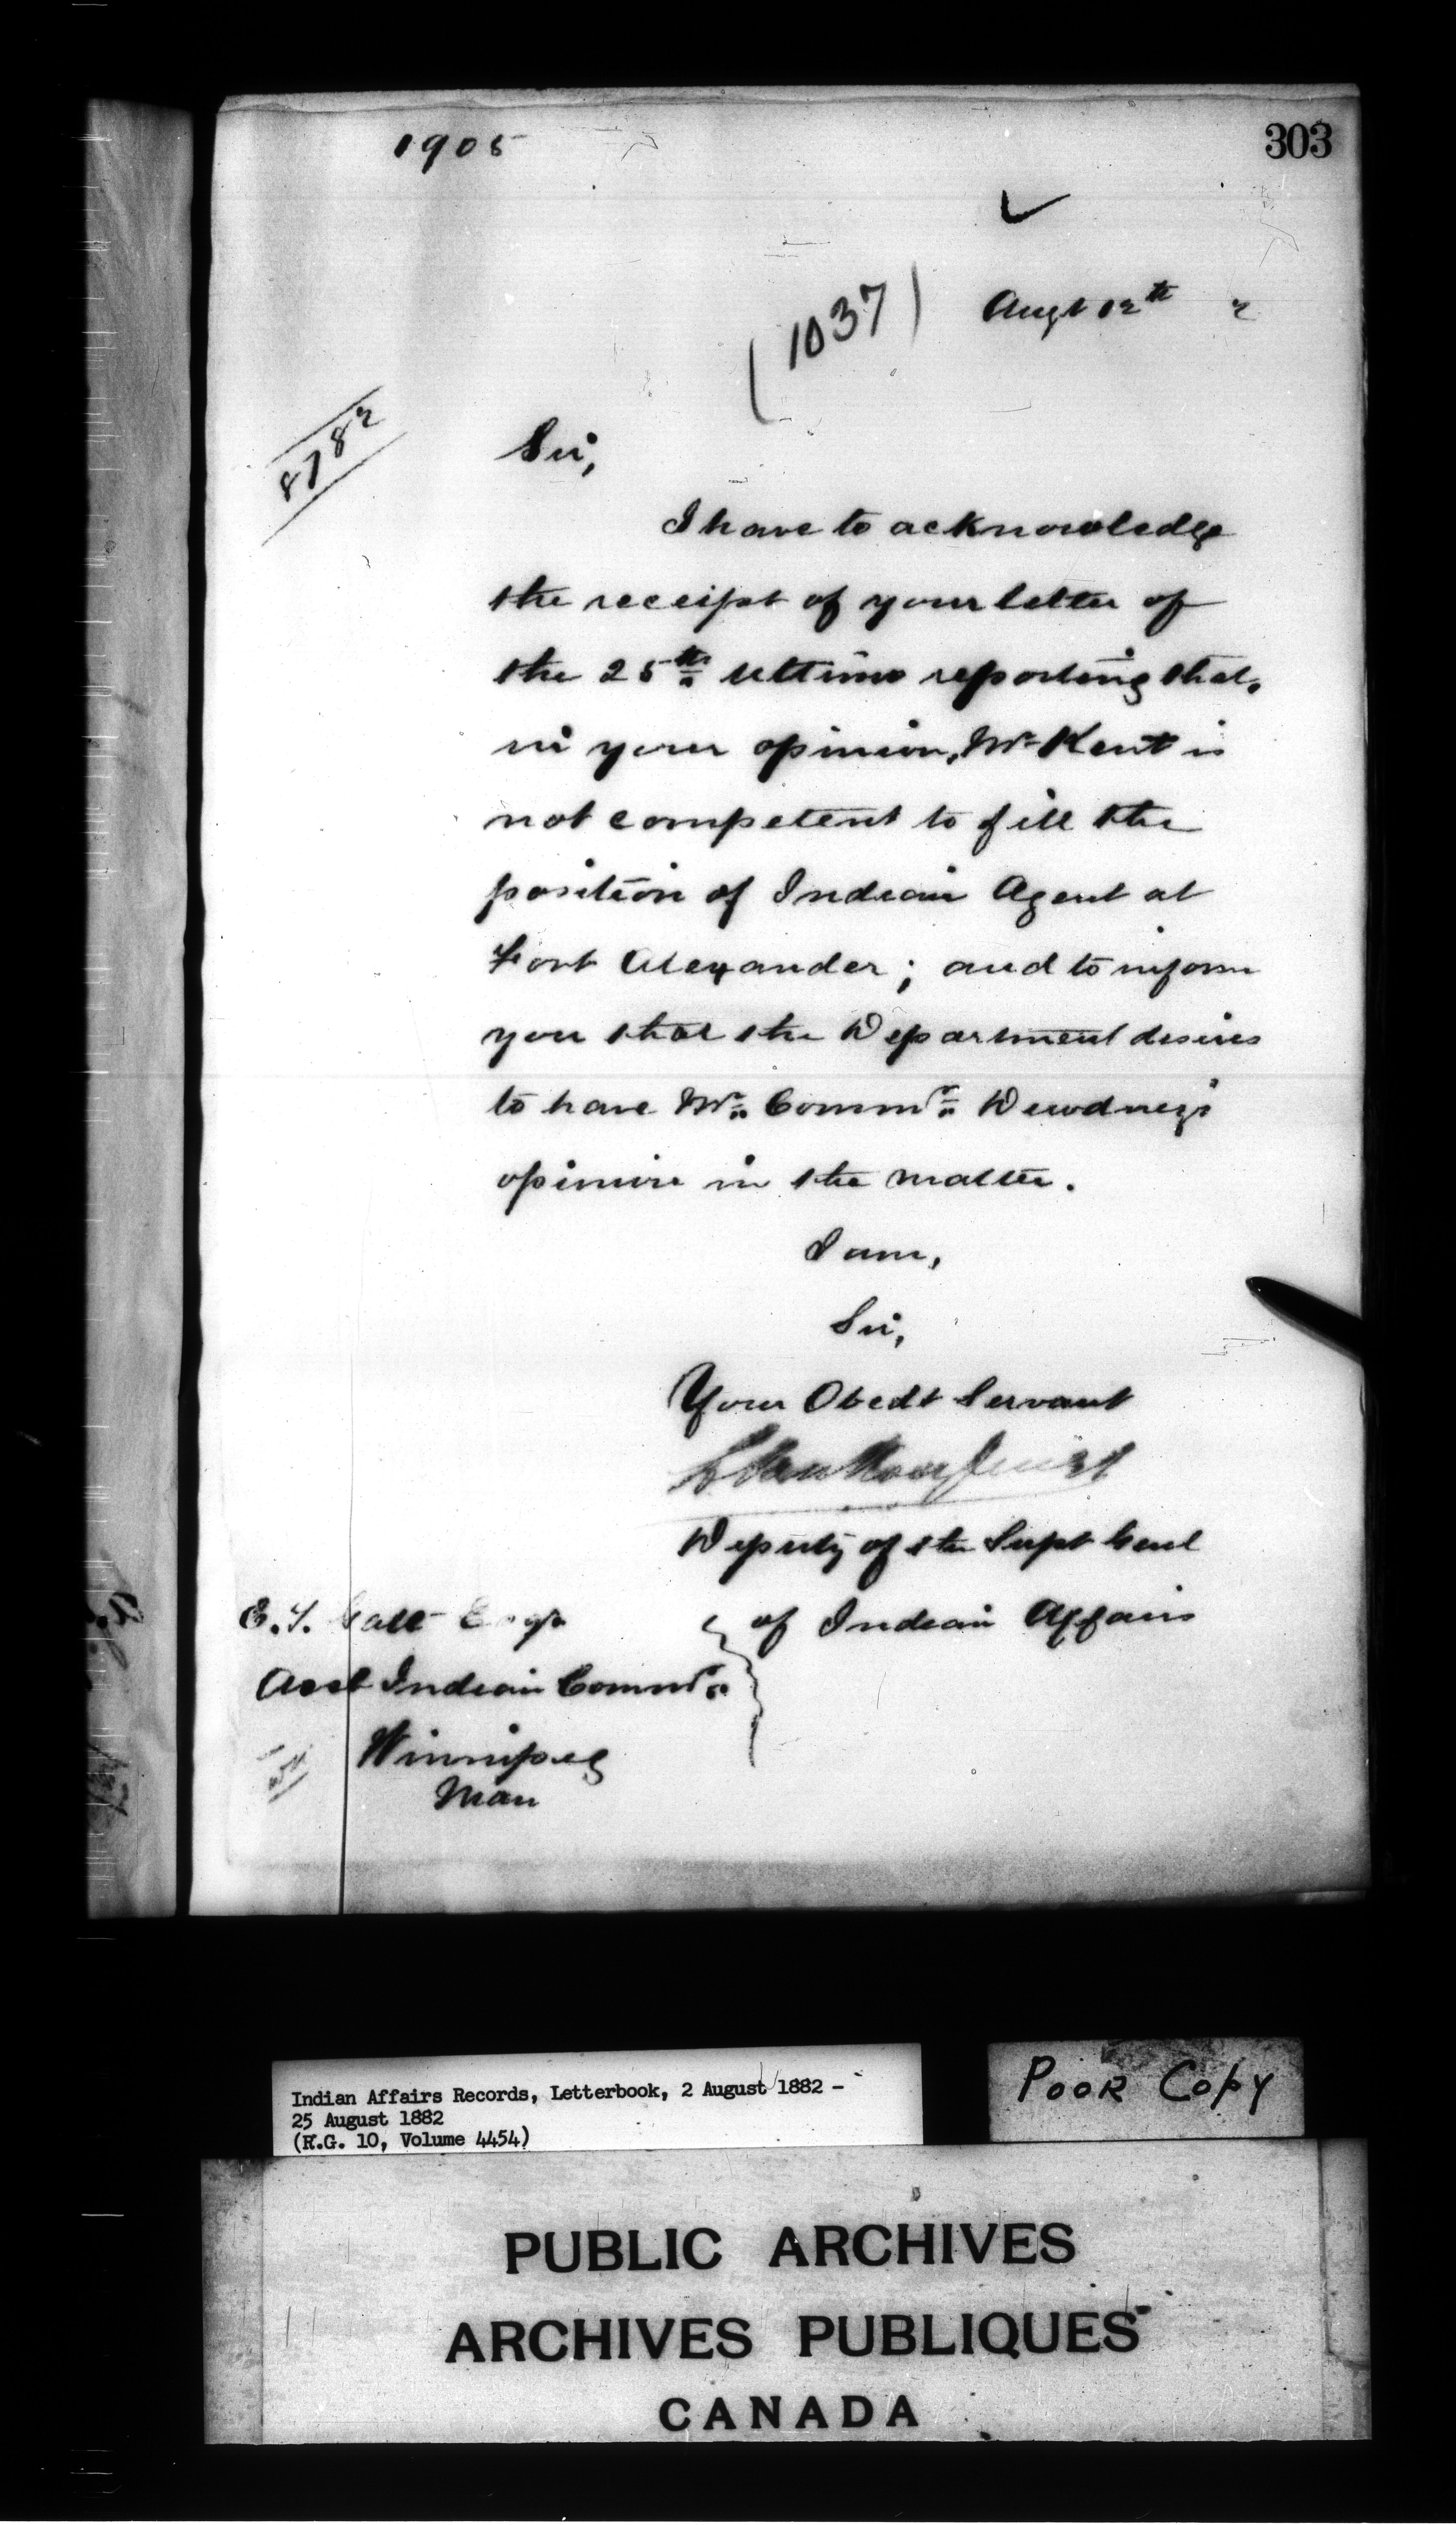 1905
303
(1037)
Augt 12th 2
8782
Sir,
I have to acknowledge
the receipt of your letter of
the 25th ultimo reporting that,
in your opinion, Mr Kent is
not competent to fill the
position of Indian Agent at
Fort Alexander; and to inform
you that the Department desires
to have Mr. Commr. Dewdney's
opinion in the matter.
I am,
Sir,
Your Obedt Servant
L Vankoughnet
Deputy of the Supt Genl
of Indian Affairs
E. T. Galt Esqr
Asst Indian Commr.
Winnipeg
Man
Indian Affairs Records, Letterbook, 2 August 1882 -
25 August 1882
(R.G. 10, Volume 4454)
POOR COPY
PUBLIC ARCHIVES
ARCHIVES PUBLIQUES
CANADA